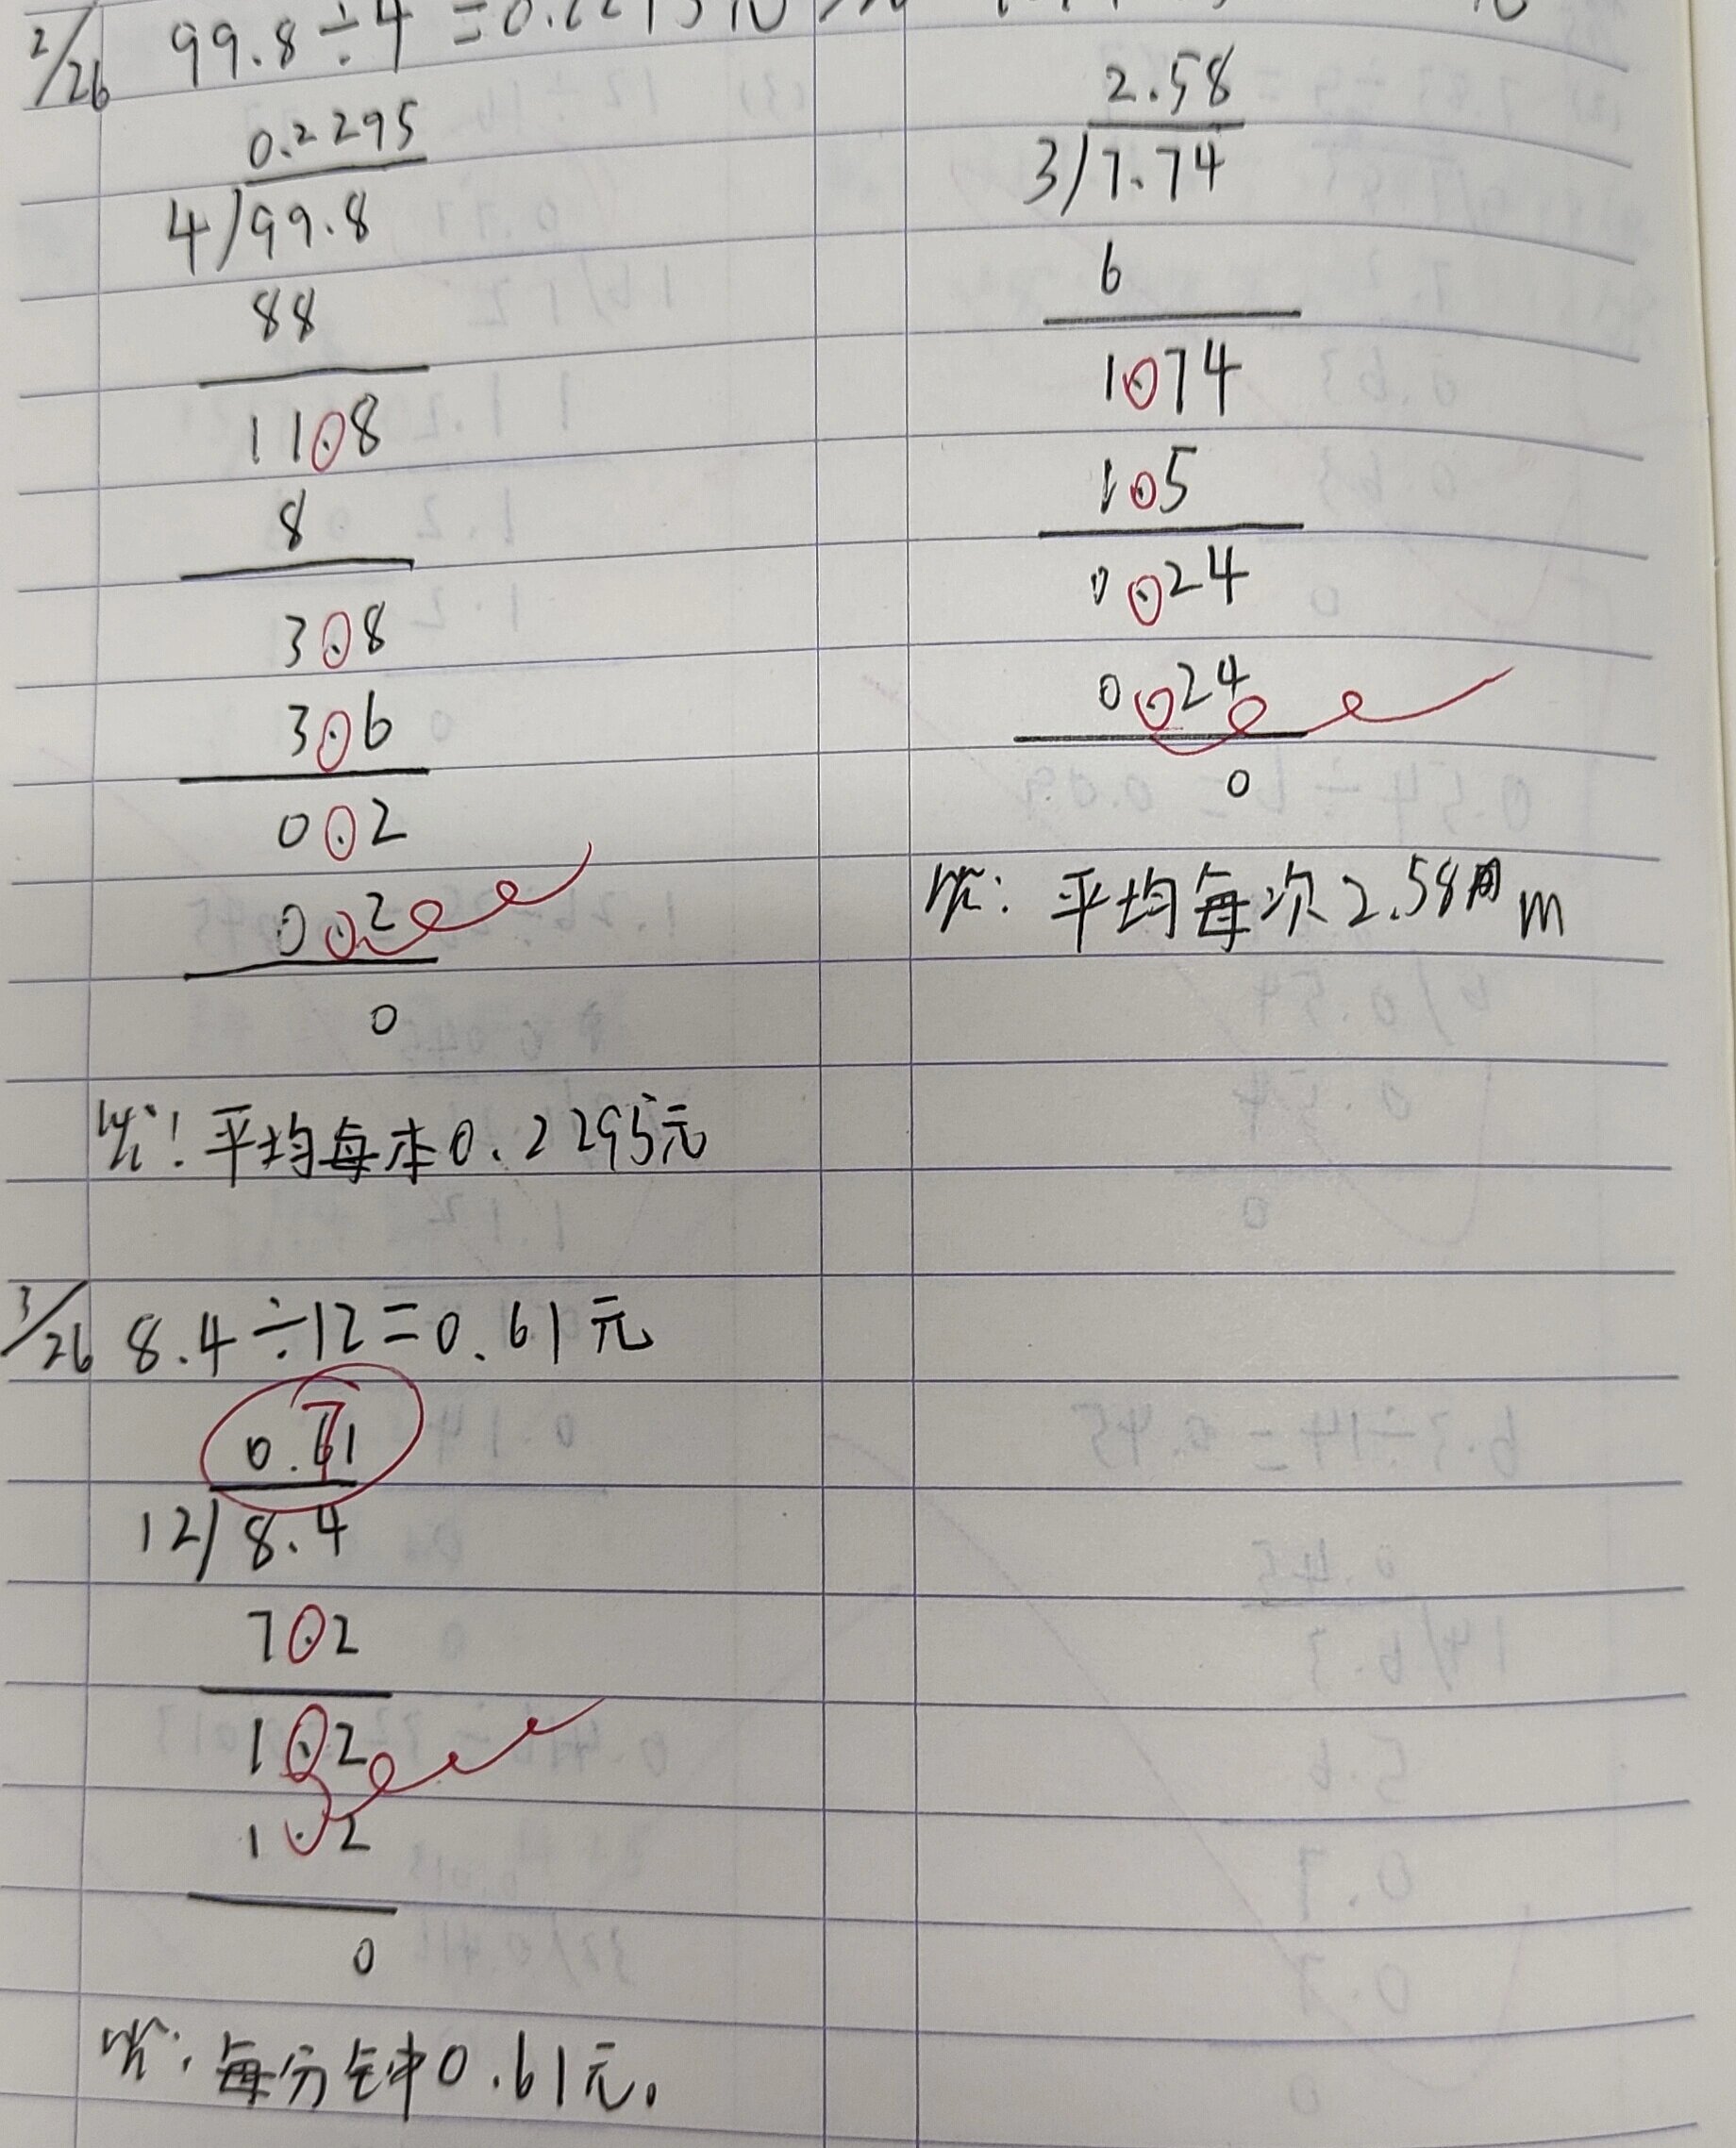 2/26 99.8÷4=0.2295元
0.2295
4/99.8
88
11.8
8
3.8
3.6
0.2
0.2
0
答:平均每本0.2295元
3/26 8.4÷12=0.61元
0.61
7
12/8.4
7.2
1.2
1.2
0
答:每分钟0.61元。
2.58
3/7.74
6
1.74
1.5
0.24
0.24
0
答:平均每次2.58m